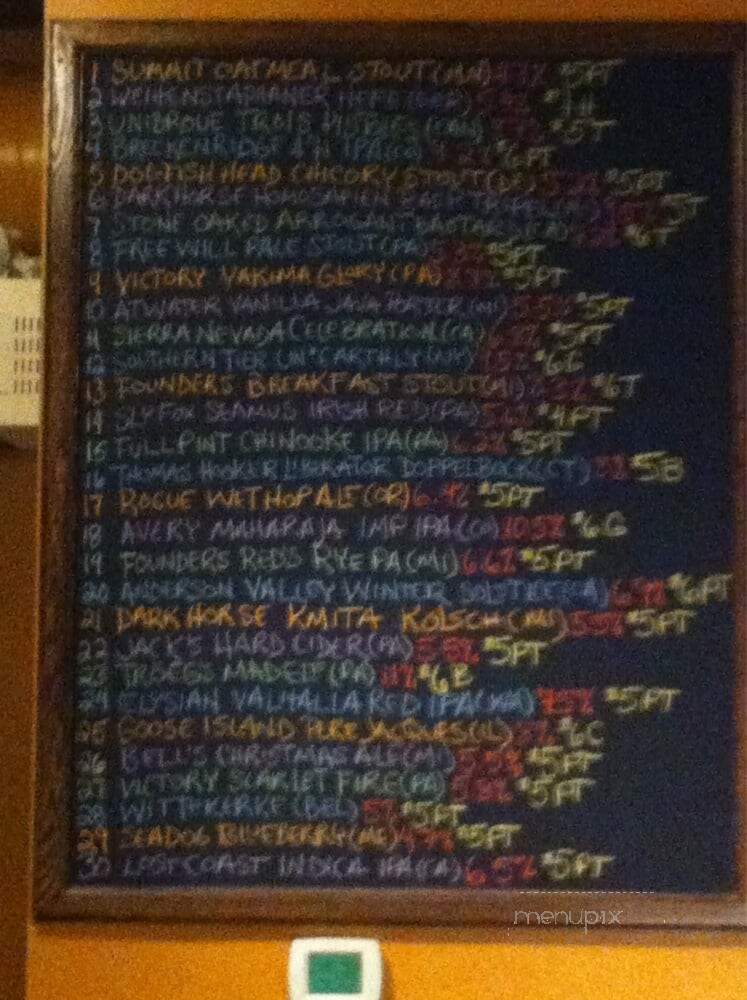 1 SUMMIT OATMEAL STOUT (MN) $5PT
2 WEIHENSTEPHANER HEFE (GER)
3 UNIBROUE TROIS PISTOLES (CAN) $5T
4 BRECKENRIDGE IPA (CO) $6PT
5 DOGFISH HEAD CHICORY STOUT (DE) $5PT
6 DARKHORSE
7 STONE OAKED ARROGANT BASTARD (CA) $6T
8 FREE WILL PALE STOUT (PA) $5PT
9 VICTORY YAKIMA GLORY (PA) $5PT
10 ATWATER VANILLA JAVA PORTER (MI) $5PT
11 SIERRA NEVADA CELEBRATION (CA) $5PT
12 SOUTHERN TIER UN*EARTHLY (NY) $6G
13 FOUNDERS BREAKFAST STOUT (MI) $6T
14 SLYFOX SEAMUS IRISH RED (PA) $4PT
15 FULLPINT CHINOOKE IPA (PA) 6.2% $5PT
16 THOMAS HOOKER LIBERATOR DOPPELBOCK (CT) 8% $5B
17 ROGUE WETHOP ALE (OR) 6.4% $5PT
18 AVERY MAHARAJA IMP IPA (CO) 10.5% $6G
19 FOUNDERS RED'S RYE PA (MI) 6.6% $5PT
20 ANDERSON VALLEY WINTER SOLSTICE (CA) 6.9% $6PT
21 DARKHORSE KMITA KOLSCH (MI) $5PT
22 JACK'S HARD CIDER (PA) 5.5% $5PT
23 TROEGS MADELF (PA) 11% $6B
24 ELYSIAN VALHALLA RED IPA (WA) 7.5% $5PT
25 GOOSE ISLAND PERE JACQUES (IL) $6C
26 BELL'S CHRISTMAS ALE (MI) $5PT
27 VICTORY SCARLET FIRE (PA) $5PT
28 WITTEKERKE (BEL) 5% $5PT
29 SEADOG BLUEBERRY (ME) 4.7% $5PT
30 LOST COAST INDICA IPA (CA) 6.5% $5PT
menupix